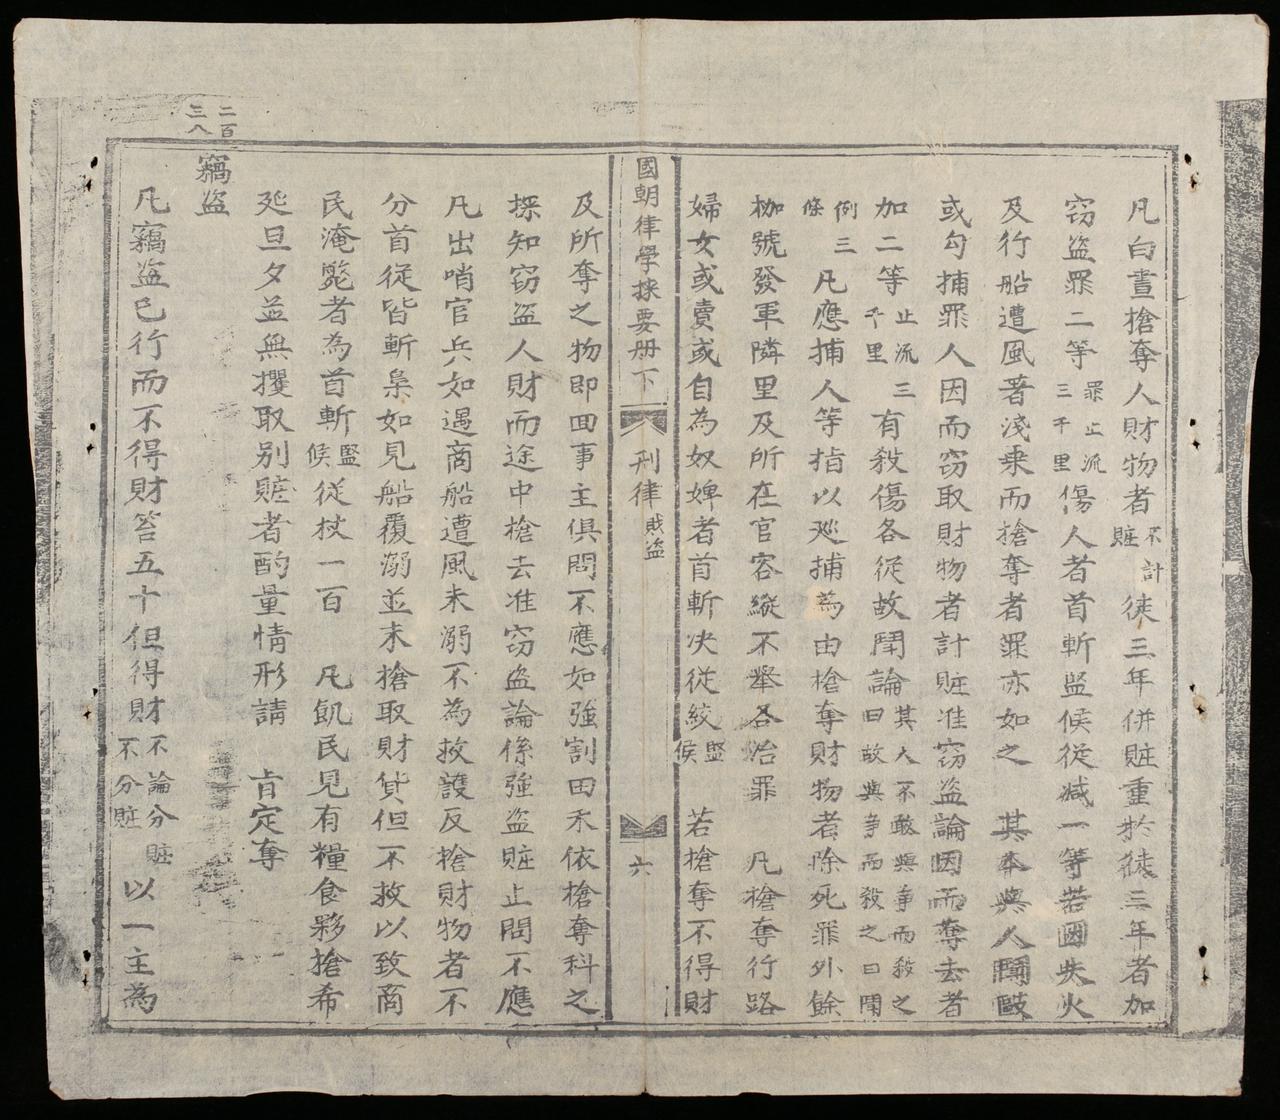 凡白晝搶奪人財物者不計賍徒三年併賍重扵徒三年者加
窃盗罪二等罪止流三千里傷人者首斬监候従减一等若因失火
及行船遭風著淺乗而搶奪者罪亦如之　其本與人鬪毆
或勾捕罪人因而窃取財物者計賍准窃盗論因而奪去者
加二等止流三千里有殺傷各従故鬥論其人不敢與争而殺之曰故與争而殺之曰鬥
例三條　凡應捕人等指以廵捕為由搶奪財物者除死罪外餘
枷號發軍隣里及所在官容縱不舉各治罪　凡搶奪行路
婦女或賣或自為奴婢者首斬决従絞監候　若搶奪不得財
國朝律學揀要册下　刑律賊盗　六
及所奪之物即回事主俱問不應如強割田禾依搶奪科之
探知窃盗人財而途中搶去准窃盗論係強盗賍止問不應
凡出哨官兵如遇商船遭風未溺不為救護反搶財物者不
分首従皆斬梟如見船覆溺並未搶取財貨但不救以致商
民淹斃者為首斬監候従杖一百　凡飢民見有糧食夥搶希
延旦夕並無攫取别賍者酌量情形請　旨定奪
二百三八
竊盗
凡竊盗已行而不得財笞五十但得財不論分賍不分賍以一主為